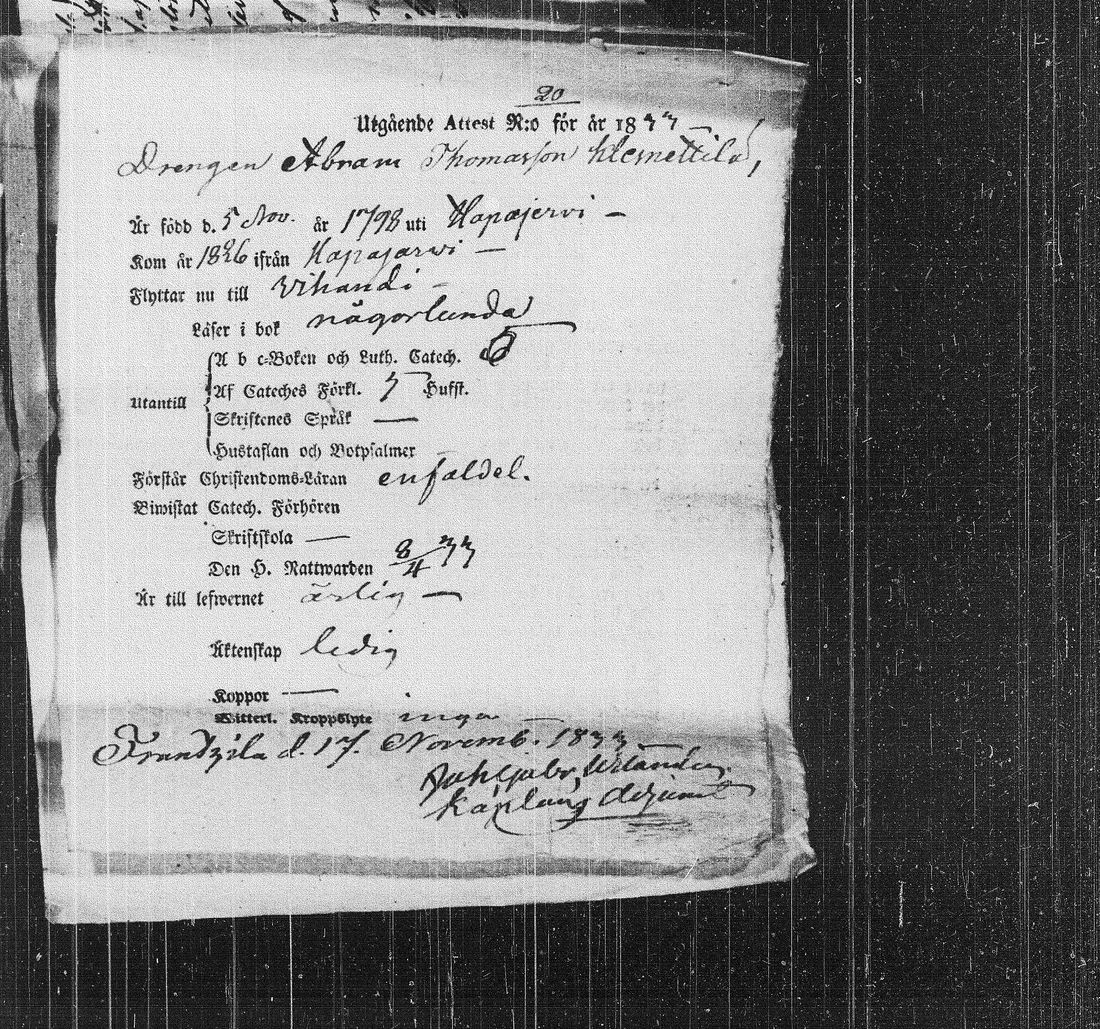 20
Utgående Attest N:o för år 1833
Drengen Abram Thomasson
Är född d. 5 Nov. år 1798 uti Hapajervi —
Kom år 1826 ifrån Hapajarwi —
Flyttar nu till Vihandi —
Läser i bok någorlunda
A b c-Boken och Luth. Catech. 5
Utantill Af Cateches Förkl. 5 Hufst.
Skriftenes Språk —
Hustaflan och Botpsalmer
Förstår Christendoms-Läran enfaldel.
Biwistat Catech. Förhören
Skriftskola —
Den H. Nattwarden 8/4 33
Är till lefwernet ärlig —
Äktenskap ledig
Koppor —
Witterl. Kroppslyte inga —
Frantzila d. 17. Novemb. 1833 —
Kaplans Adjunct